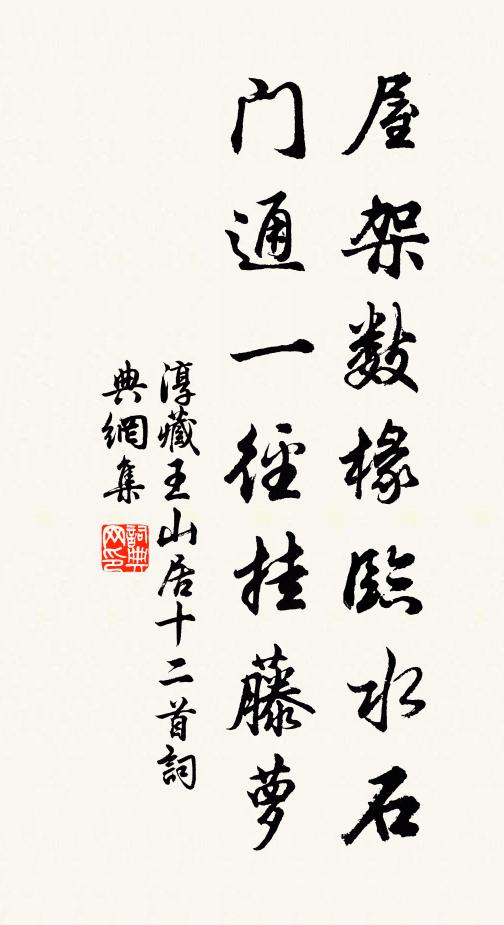 屋架數椽臨水石
門通一徑挂藤萝
淳藏王山居十二首詞
典網集
詞典
网印